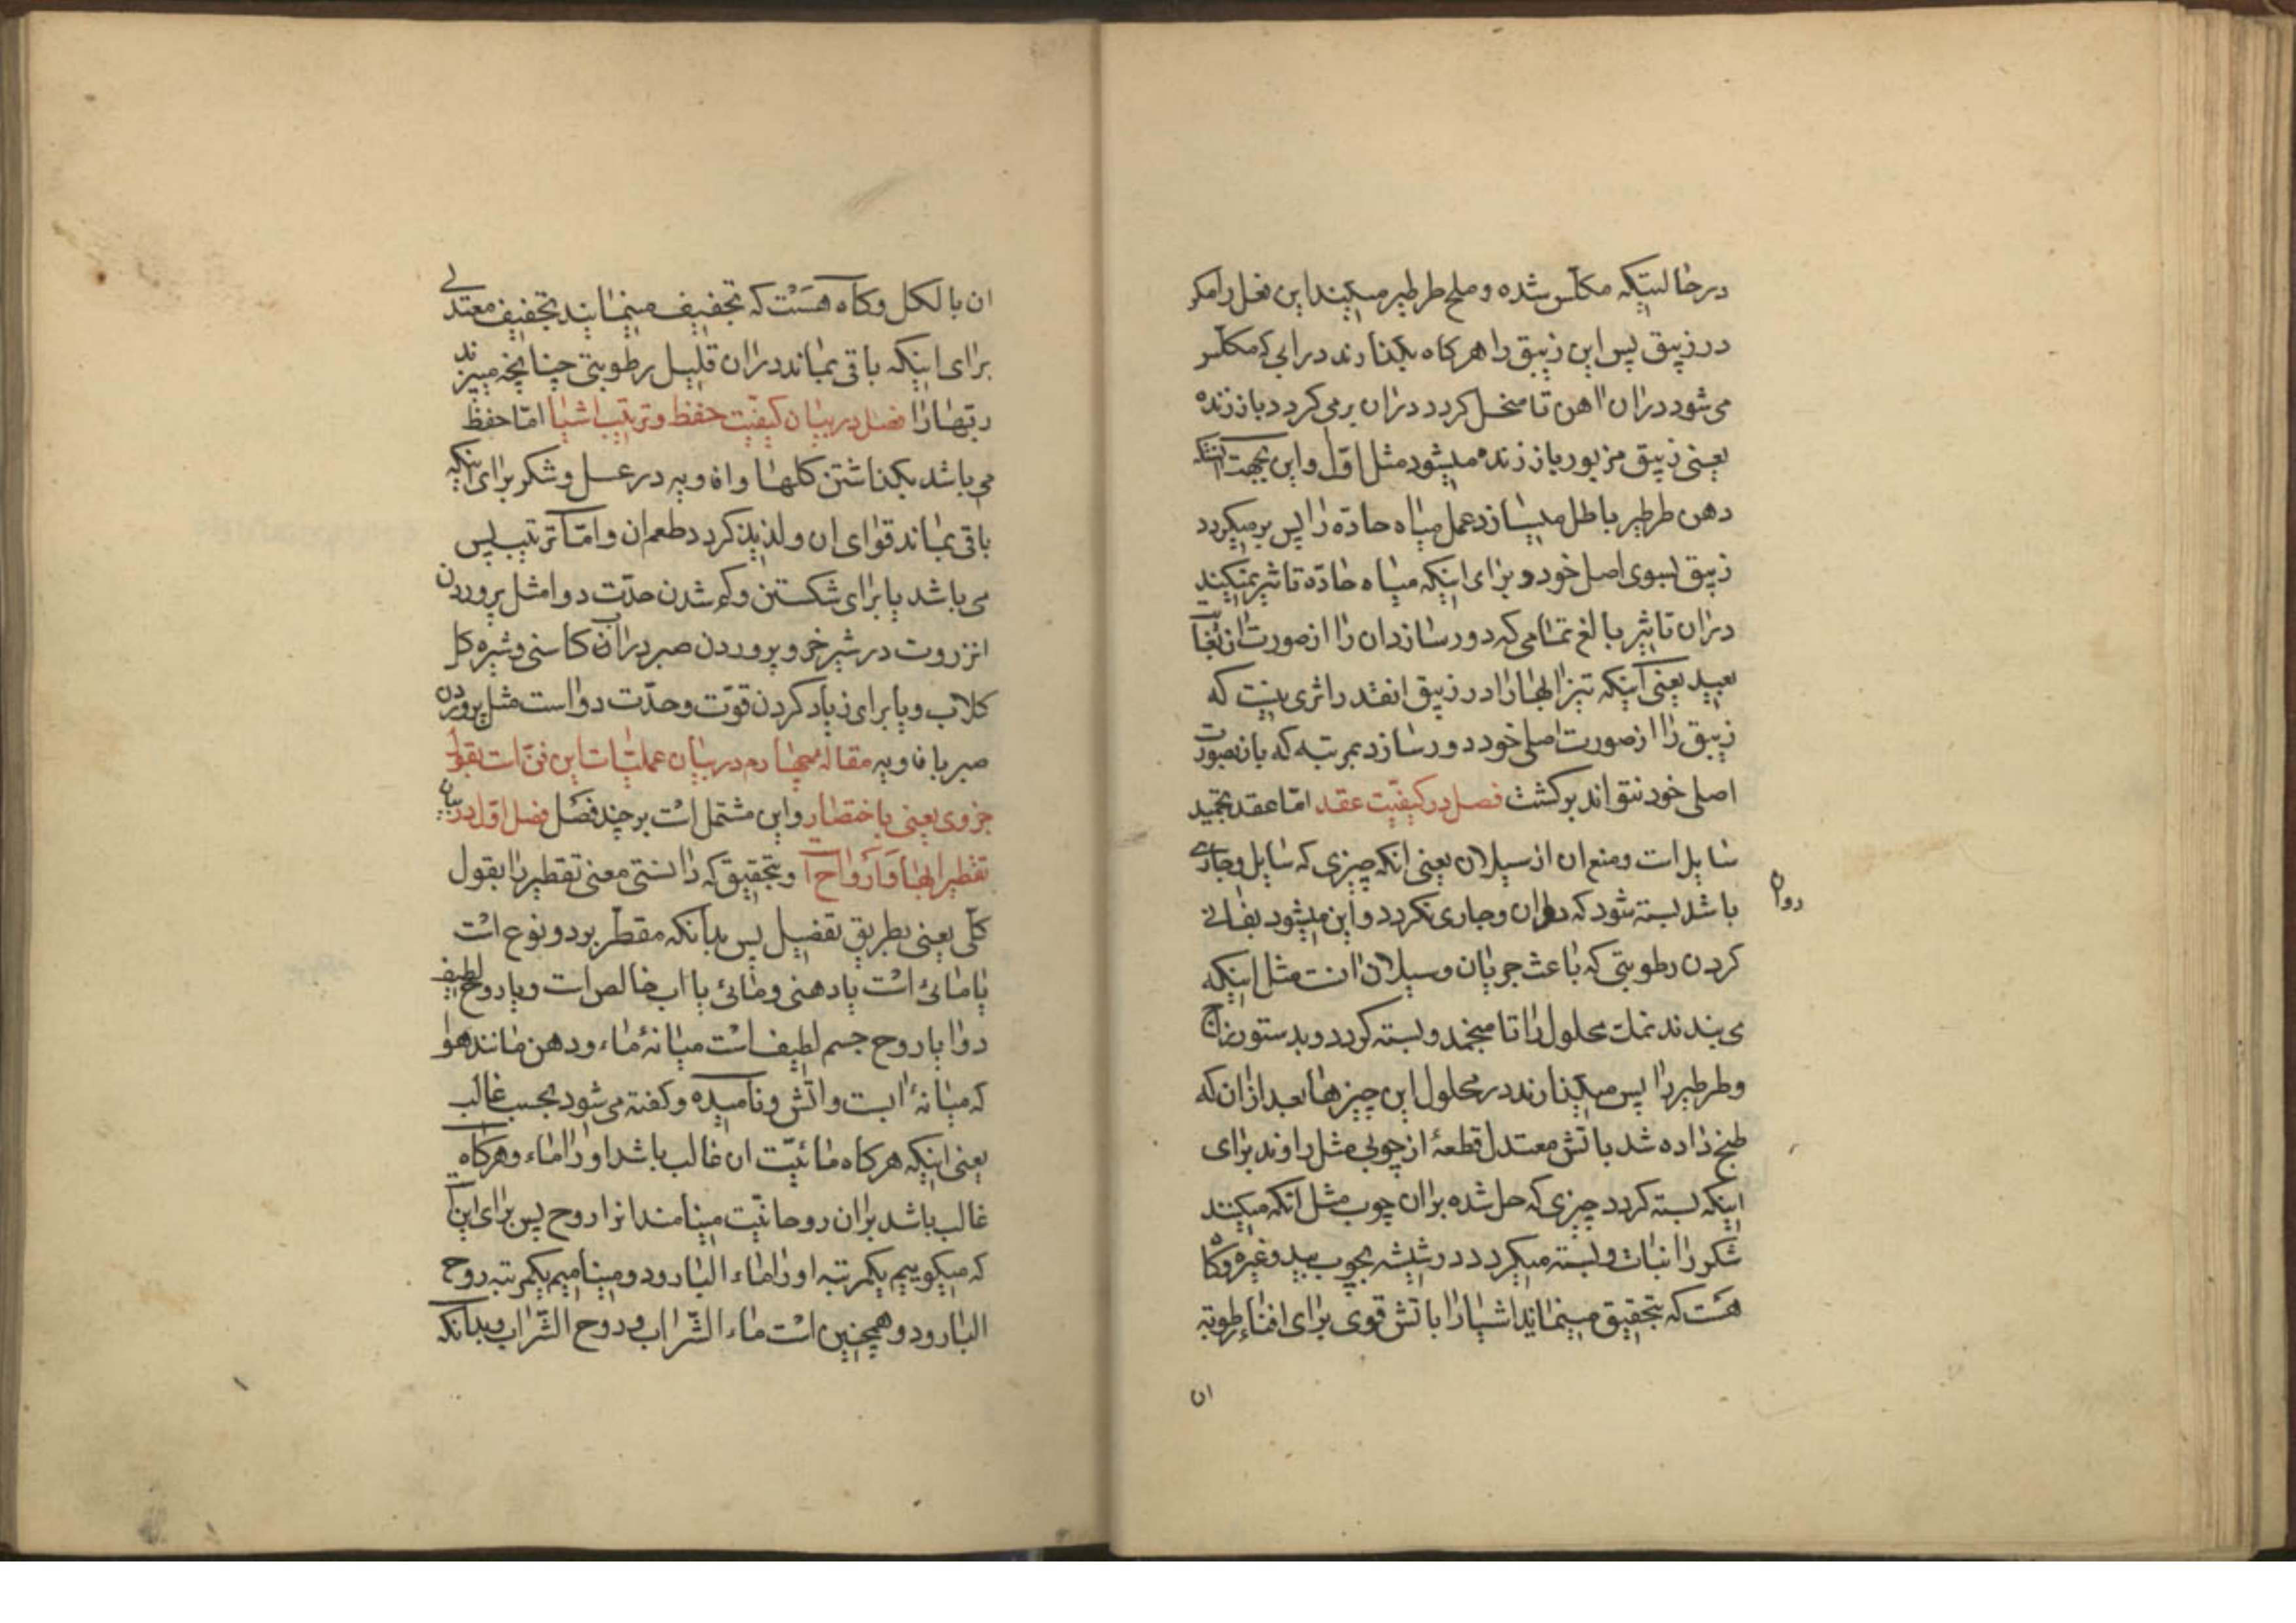 درحالتیکه مکلّس شده و ملح طرطیر میکنند این فعل را مکر
در زیبق پس این زیبق را هرکاه بکذارند در آبی که مکلّس
می‌شود در ان اهن تا منحل کردد در ان برمی کردد باز زنده
یعنی زیبق مزبور باز زنده میشود مثل اوّل و این بجهت آنستکه
دهن طرطیر باطل میسازد عمل میاه حادّه را پس برمیکردد
زیبق بسوی اصل خود و برای اینکه میاه حادّه تاثیر نمیکنند
در ان تاثیر بالغ تمامی که دور سازد ان را از صورت
بعید یعنی اینکه تیزابها را در زیبق انقدر اثری نیست که
زیبق را از صورت اصلی خود دور سازد بمرتبه که باز بصورت
اصلی خود نتواند برکشت فصل در کیفیّت عقد امّا عقد تجمید
سایل است و منع ان از سیلان یعنی انکه چیزی که سایل و جاری
باشد بسته شود که روان و جاری نکردد و این میشود بفانی
روان
کردن رطوبتی که باعث جریان و سیلان انست مثل اینکه
می بندند نمک محلول را تا منجمد و بسته کردد و بدستور زاج
و طرطیر را پس میکذارند در محلول این چیزها بعد از ان که
طبخ داده شد باتش معتدل قطعهٔ از چوبی مثل راوند برای
اینکه بسته کردد چیزی که حل شده بر ان چوب مثل انکه میکنند
شکر را نبات و بسته میکردد در شیشه بچوب بید و غیره و کاه
هست که بتحقیق مینماید اشیا را باتش قوی برای افناء رطوبة
ان
ان بالکل و کاه هست که تجفیف مینمایند تجفیف معتدلی
برای اینکه باقی بماند در ان قلیل رطوبتی چنانچه میپزند
ربّها را فصل در بیان کیفیّت حفظ و ترتیب اشیا امّا حفظ
می باشد بکذاشتن کلها و افاویه در عسل و شکر برای اینکه
باقی بماند قوای ان و لذیذ کردد طعم ان و امّا ترتیب پس
می باشد یا برای شکستن و کم شدن حدّت دوا مثل پروردن
انزروت در شیر خر و پروردن صبر در آب کاسنی و شیره کل
کلاب و یا برای زیاد کردن قوّت و حدّت دوا است مثل پروردن
صبر بافاویه مقالهٔ چهارم در بیان عملیّات این فنّ است بقول
جزوی یعنی باختصار و این مشتمل است بر چند فصل فصل اوّل در بیان
تقطیر ابها و ارواح و بتحقیق که دانستی معنی تقطیر را بقول
کلّی یعنی بطریق تفصیل پس بدانکه مقطّر بر دو نوع است
یا مائی است یا دهنی و مائی یا اب خالص است و یا روح لطیف
دوا یا روح جسم لطیف است میانهٔ ماء و دهن مانند هوا
که میانهٔ ابست و اتش و نامیده و کفته می شود بحسب غالب
یعنی اینکه هرکاه مائیّت ان غالب باشد او را ماء و هرکاه
غالب باشد بران روحانیّت مینامند انرا روح پس برای این
که میکوییم یکمرتبه او را ماء البارود و مینامیم یکمرتبه روح
البارود و همچنین است ماء الشّراب و روح الشّراب و بدانکه